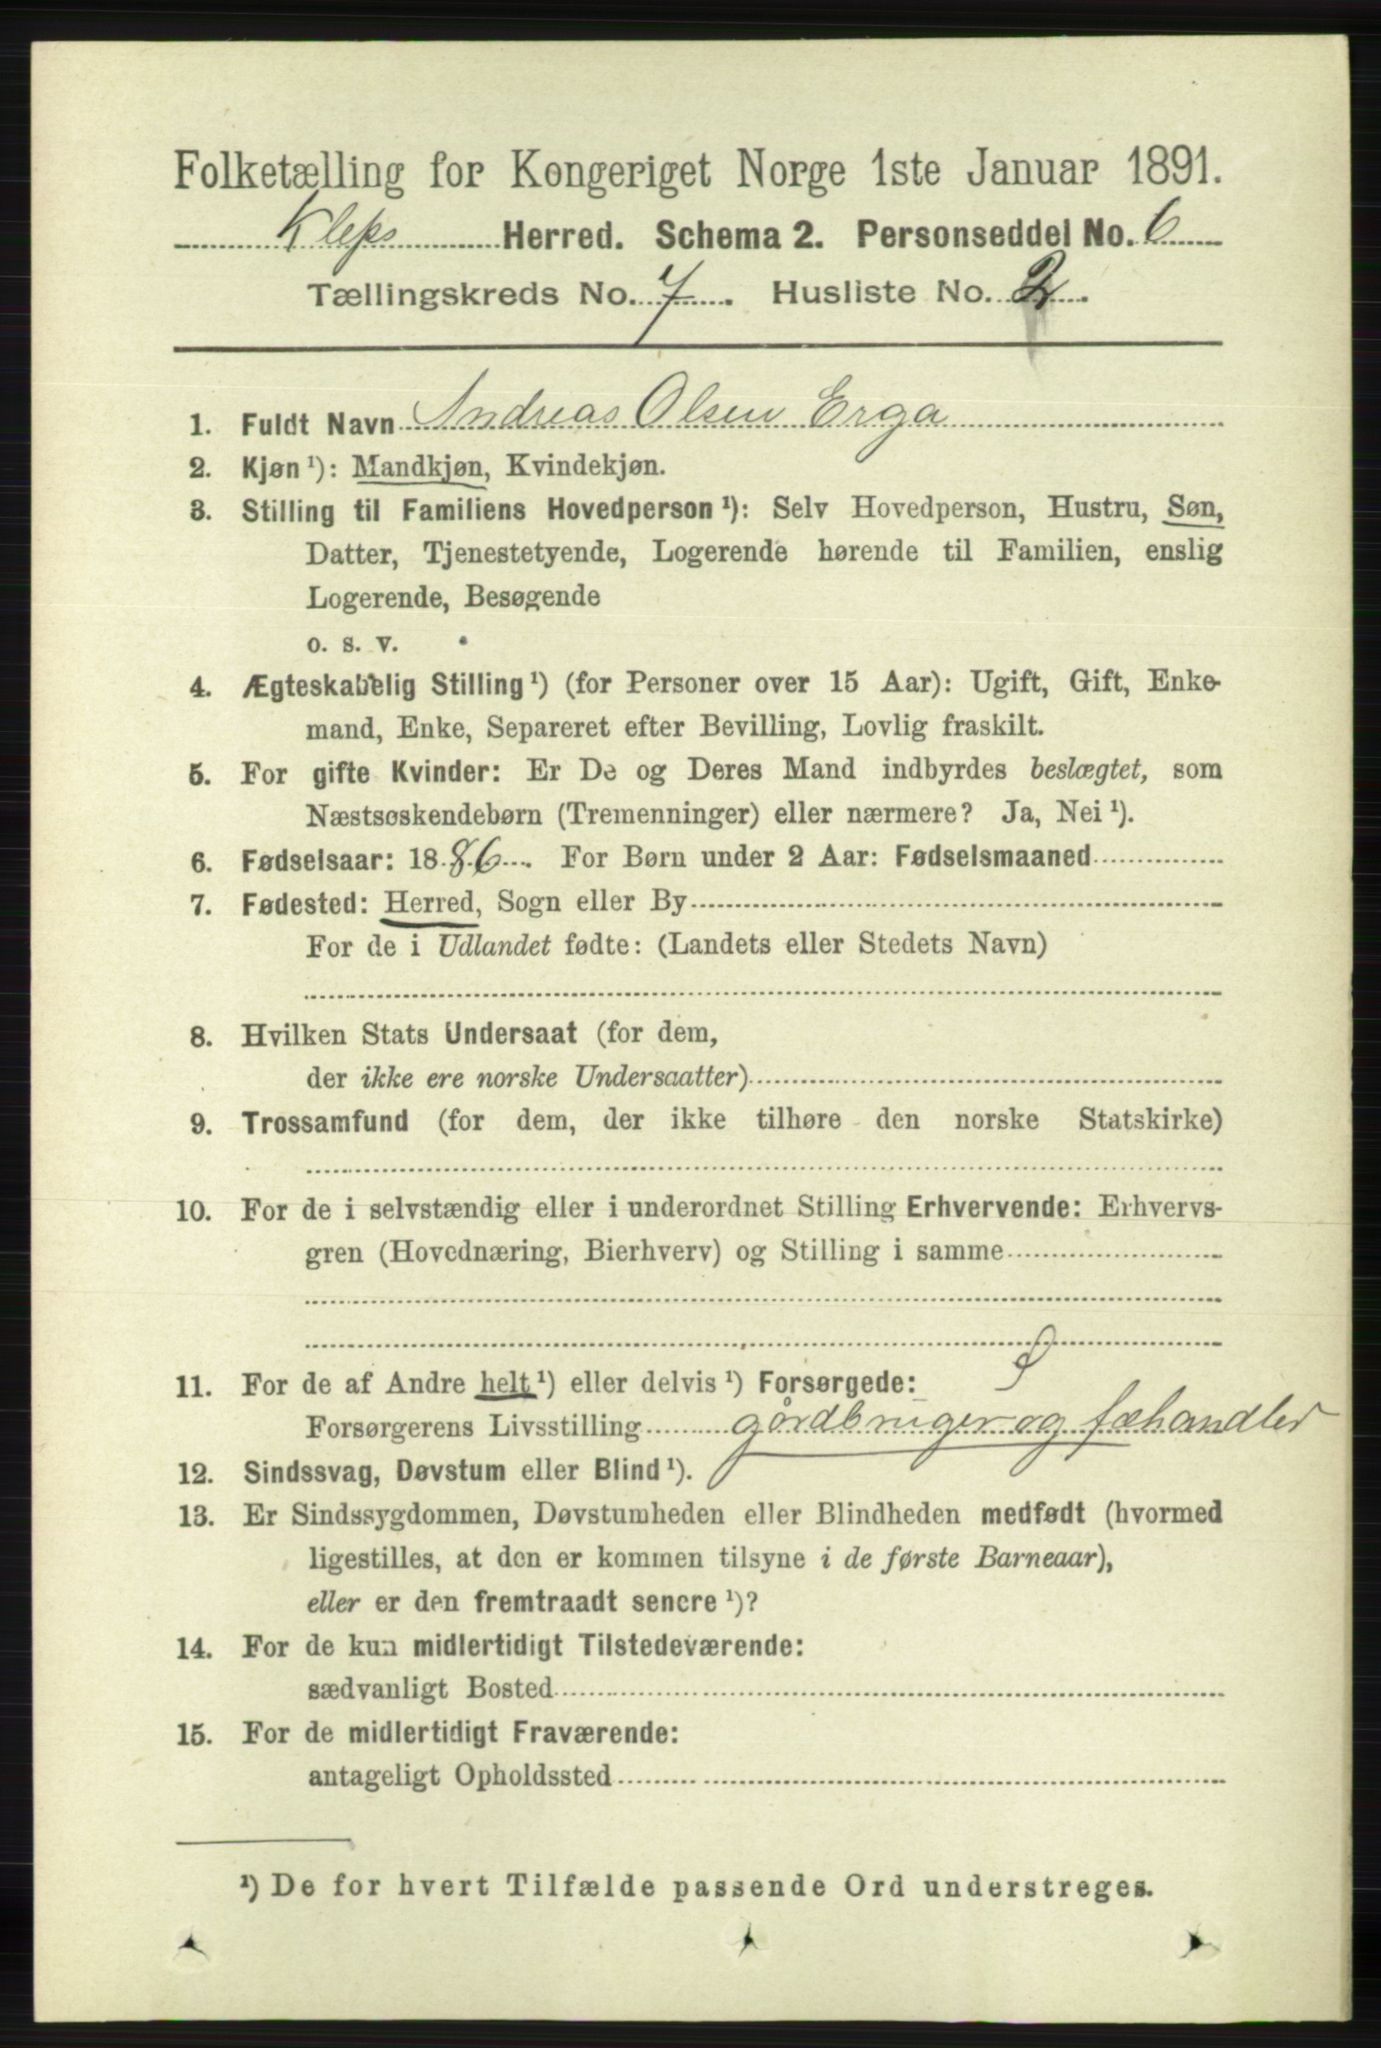 Folketælling for Kongeriget Norge 1ste Januar 1891.
Kleps Herred. Schema 2. Personseddel No. 6
Tællingskreds No. 7. Husliste No. 2.
1. Fuldt Navn Andreas Olsen Erga
2. Kjøn ¹): Mandkjøn, Kvindekjøn.
3. Stilling til Familiens Hovedperson ¹): Selv Hovedperson, Hustru, Søn,
Datter, Tjenestetyende, Logerende hørende til Familien, enslig
Logerende, Besøgende
o. s. v.
4. Ægteskabelig Stilling ¹) (for Personer over 15 Aar): Ugift, Gift, Enke-
mand, Enke, Separeret efter Bevilling, Lovlig fraskilt.
5. For gifte Kvinder: Er De og Deres Mand indbyrdes beslægtet, som
Næstsøskendebørn (Tremenninger) eller nærmere? Ja, Nei ¹).
6. Fødselsaar: 1886. For Børn under 2 Aar: Fødselsmaaned
7. Fødested: Herred, Sogn eller By
For de i Udlandet fødte: (Landets eller Stedets Navn)
8. Hvilken Stats Undersaat (for dem,
der ikke ere norske Undersaatter)
9. Trossamfund (for dem, der ikke tilhøre den norske Statskirke)
10. For de i selvstændig eller i underordnet Stilling Erhvervende: Erhvervs-
gren (Hovednæring, Bierhverv) og Stilling i samme
11. For de af Andre helt ¹) eller delvis ¹) Forsørgede:
Forsørgerens Livsstilling gårdbruger og fæhandler
12. Sindssvag, Døvstum eller Blind ¹).
13. Er Sindssygdommen, Døvstumheden eller Blindheden medfødt (hvormed
ligestilles, at den er kommen tilsyne i de første Barneaar),
eller er den fremtraadt senere ¹)?
14. For de kun midlertidigt Tilstedeværende:
sædvanligt Bosted
15. For de midlertidigt Fraværende:
antageligt Opholdssted
¹) De for hvert Tilfælde passende Ord understreges.